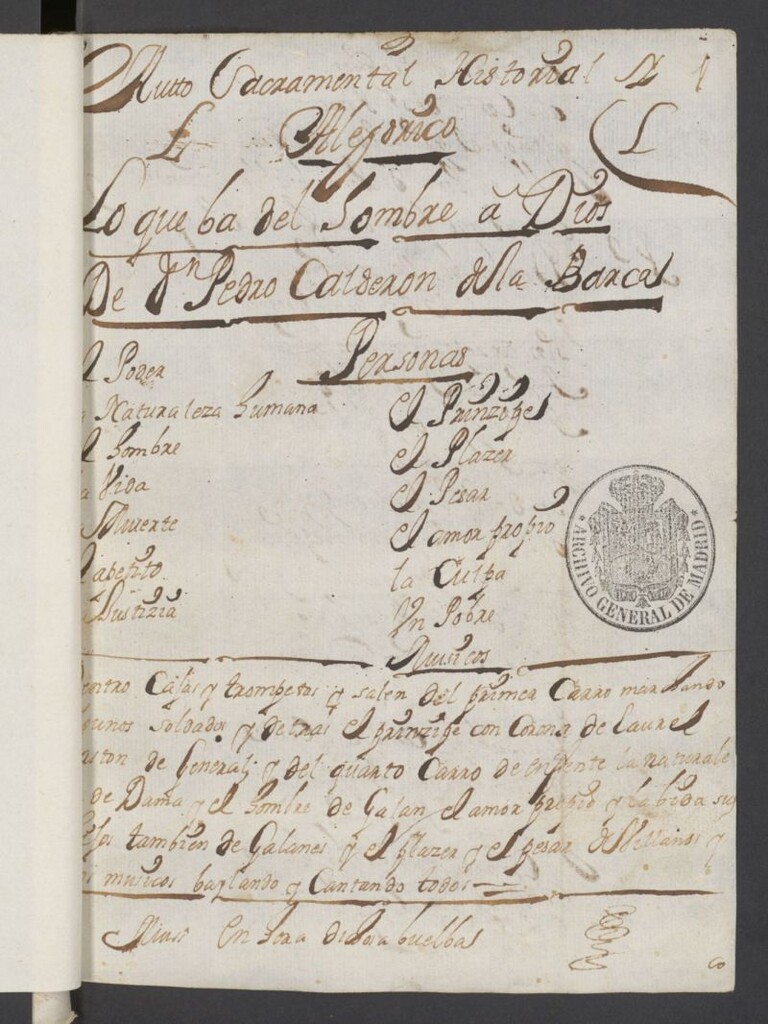 Autto Sacramental Historial y 1
L Alegorico L
Lo que ba del hombre a Dios
De Dn Pedro Calderon de la Barca
Personas
l Poder
Naturaleza humana
l hombre
a Vida
Muerte
l apetito
a Justizia
el Prinzipe
el Plazer
el Pesar
el amor propio
la Culpa
Un Pobre
Musicos
ARCHIVO GENERAL DE MADRID
entro Cajas y trompetas y salen del primer Carro marchando
gunos soldados y detras el prinzipe con Corona de laurel
aston de General; y del quarto Carro de enfrente la naturale
de Dama y el hombre de Galan el amor propio y la bida
tambien de Galanes y el plazer y el pesar de Villanos y
musicos baylando y Cantando todos
Musi En hora dichosa buelba
co